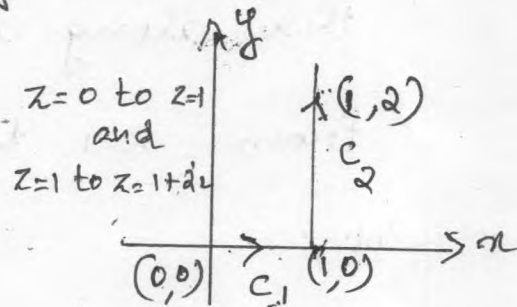 y
z=0 to z=1
and
z=1 to z=1+2i
(1,2)
C2
x
(0,0)
(1,0)
C1